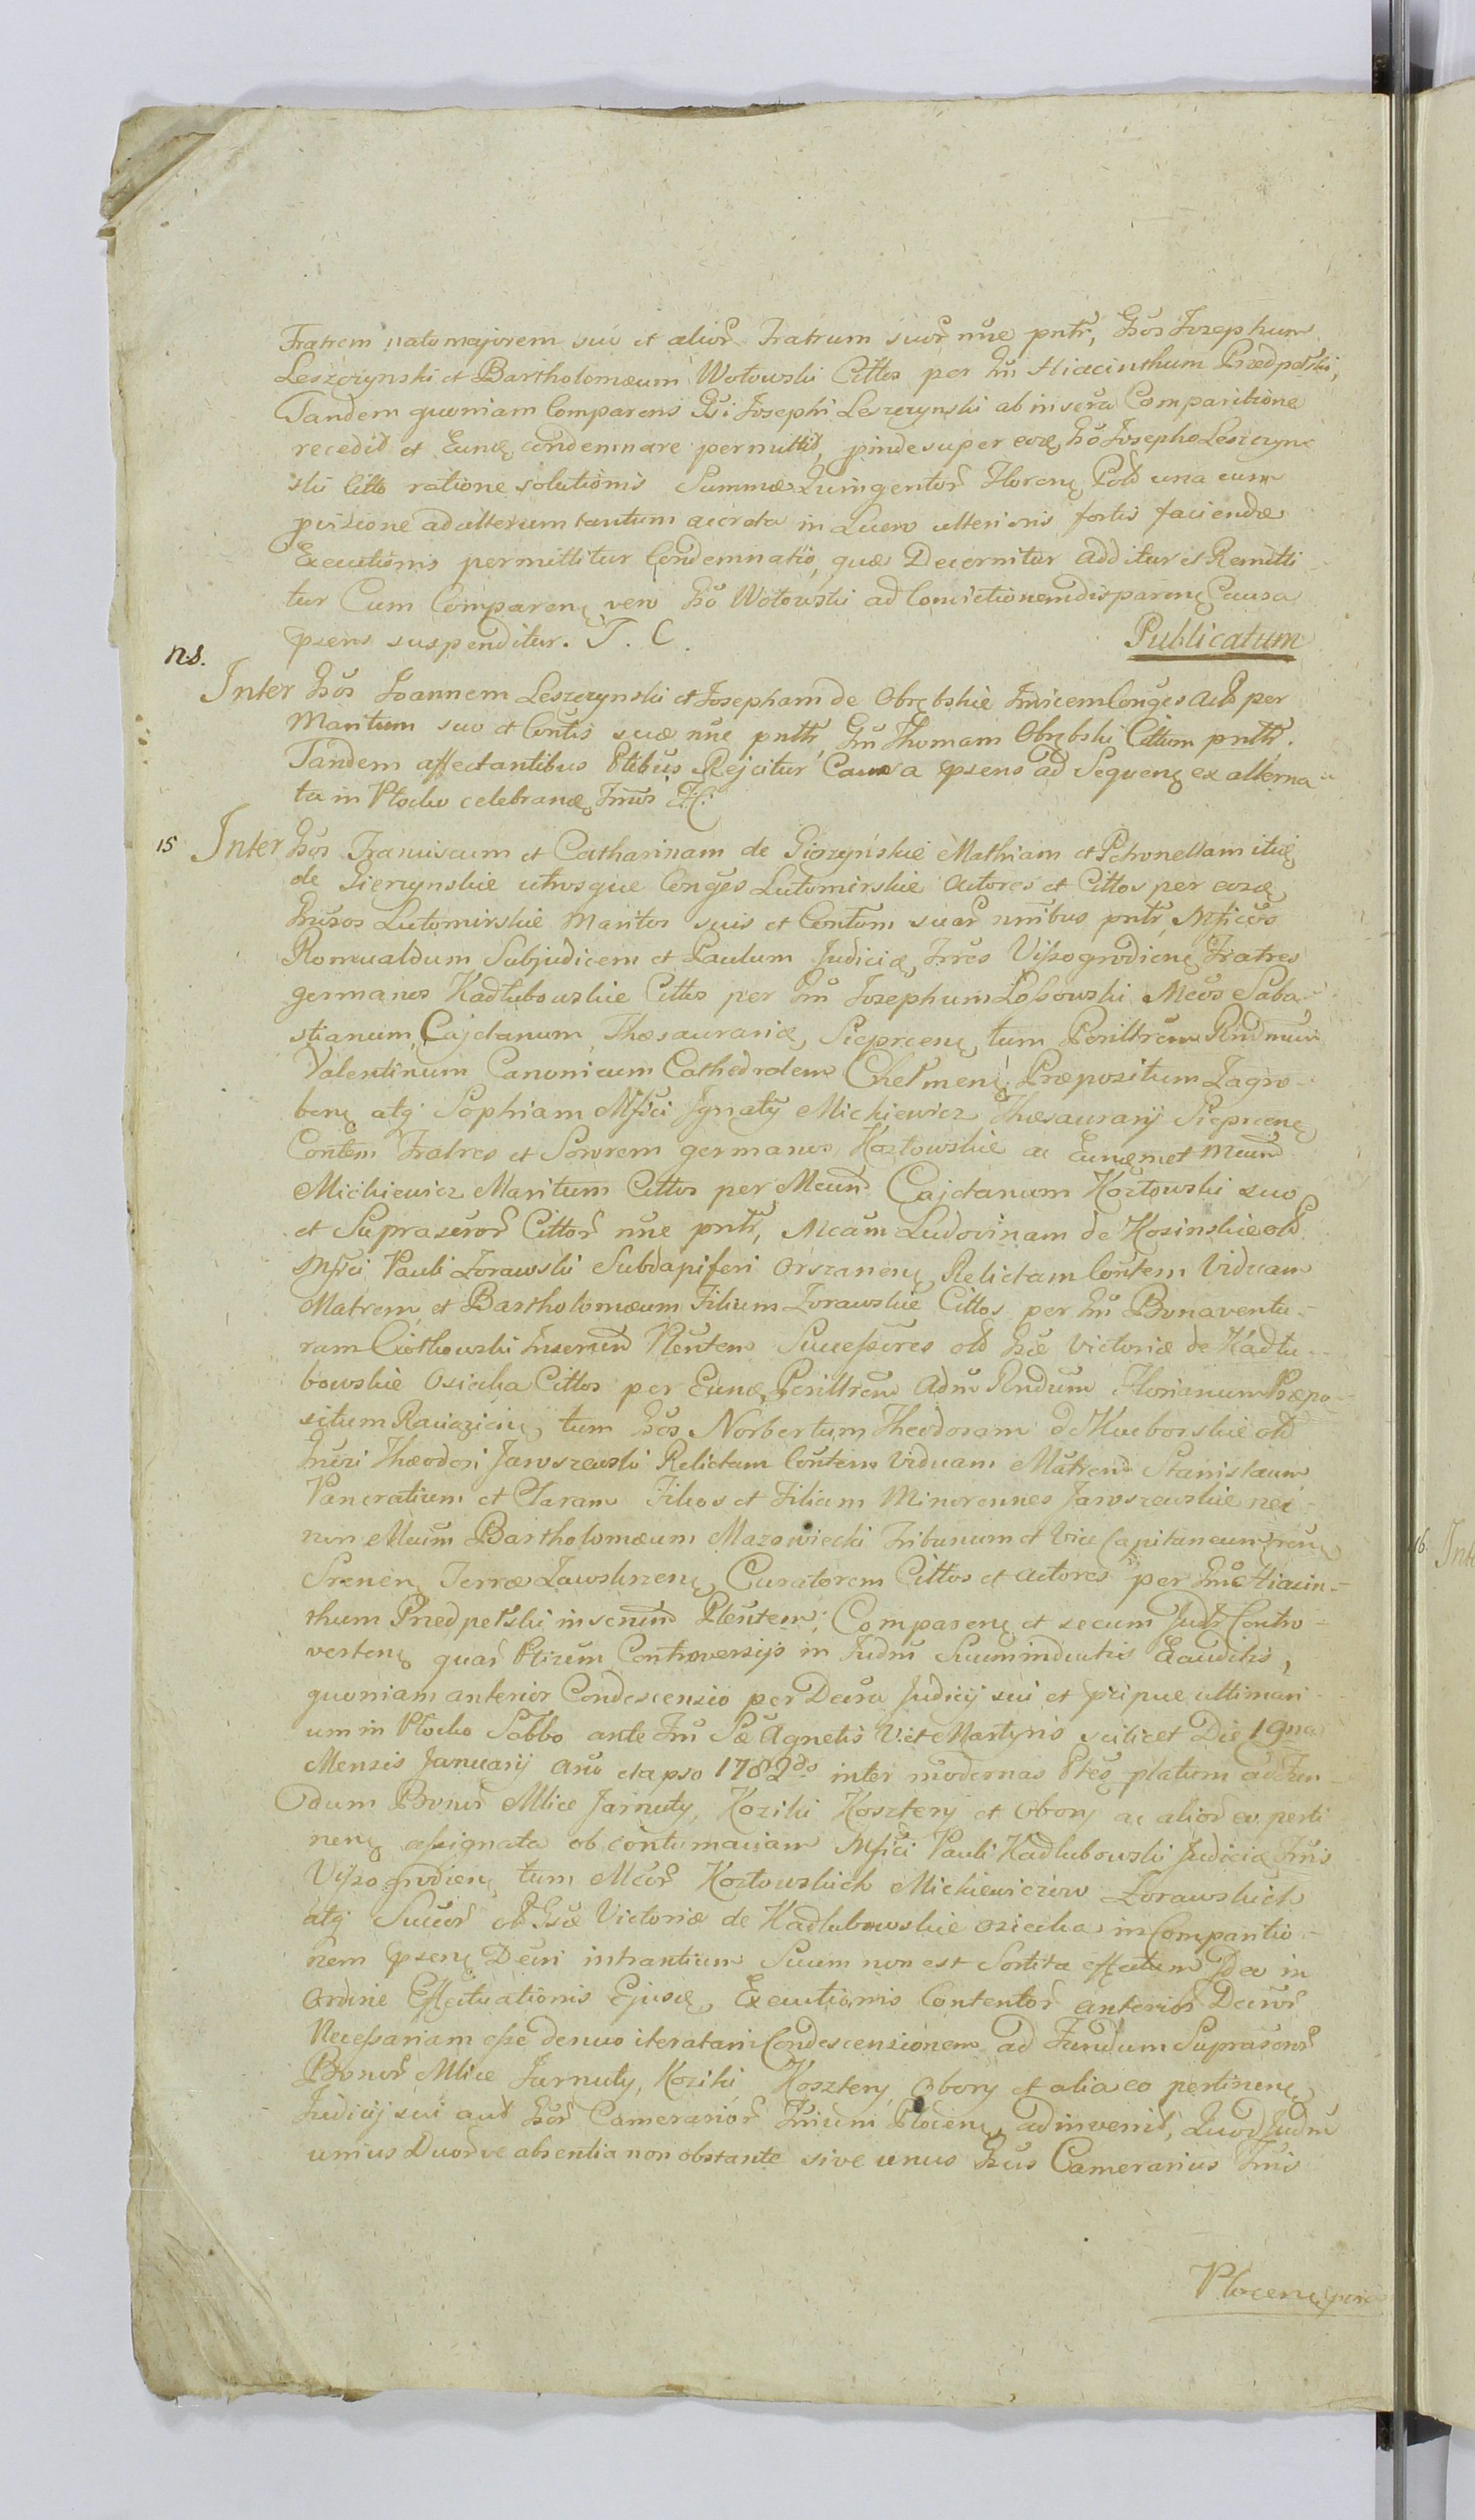 Fratrem natu majorem suo et alior Fratrum suor nñe pntr, Gsos Josephum
Leszczynski et Bartholomæum Wołowski Cittos per Gñ Hiacinthum Przedpełski,
Tandem quoniam Comparens Gsi Josephi Leszczynski ab inserta Comparitione
recedit et Eundę condemnare permittit, proinde super eodę Gso Josepho Leszczyn-
ski Citto ratione solutionis Summæ Quingentor Florenę Pold una cum
provisione ad alterum tantum accreta in Lucro ulterioris fortis faciendæ
Executionis permittitur Condemnatio, quæ Decernitur additur et Remitti-
tur Cum Comparenę vero Gso Wołowski ad Convictionem disparenę Causa
præsens suspenditur. T. C.
Publicatum
n.s.
Inter Gsos Joannem Leszczynski et Josepham de Obrębskie Invicem Conges Act per
Maritum suo et Contis suæ nñe pntr, Gñ Thomam Obrębski Cittum pntr.
Tandem affectantibus Ptibus Rejcitur Causa præsens ad Sequenę ex alterna-
ta in Płocko celebrandę Trmos T.C.
15 Inter Gsos Franciscum et Catharinam de Gierzyńskie Mathiam et Petronellam itidę
de Gierzynskie utrosque Conges Lutomirskie Actores et Cittos per eosdę
Gñrsos Lutomirskie Maritos suis et Contum suar nnibus pntr, Mficos
Romualdum Subjudicem et Paulum Judicidę, Trres Vissogrodienę Fratres
germanos Kadłubowskie Cittos per Gñ Josephum Lossowski, Mcos Seba-
stianum, Cajetanum, Thesauraridę, Sieprcenę, tum Perilltrem Rndmum
Valentinum Canonicum Cathedralem Chełmenę, Præpositum Zagro-
benę atq Sophiam Mfici Ignatij Mickiewicz Thesaurarij Sieprcenę
Contem Fratres et Sororem germanos Kozłowskie ac Eundęmet Mcum
Mickiewicz Maritum Cittos per Mcum Cajetanum Kozłowski suo
et Suprascror Cittor nñe pntr, Mcam Ludovinam de Kosinskie old
Mfici Pauli Zorawski Subdapiferi Orszanenę Relictam Contem Viduam
Matrem, et Bartholomæum Filium Zorawskie Cittos per Gñ Bonaventu-
ram Ciołkowski Inserund Plentem Successores old Gsæ Victoriæ de Kadłu-
bowskie Osiecka Cittos per Eundę, Perilltrem Adm Rndum Florianum Præpo-
situm Raciązienę, tum Gsos Norbertum Theodoram de Kuborskie old
Gñrsi Theodori Jaroszewski Relictam Contem Viduam Matrem Stanislaum
Pancratium et Claram Filios et Filiam Minorennes Jaroszewskie nec
non Mcum Bartholomæum Mazowiecki Tribunum et Vice Capitaneum Grenę
Srenenę Terræ Zawskrzenę Curatorem Cittos et Actores per Gñ Hiacin-
thum Przedpełski inserund Plentem; Comparenę et secum Judr Contro-
vertenę quar Ptium Controversijs in Judm Suum inductis Exauditis,
quoniam anterior Condescensio per Decra Judicij sui et pripue ultimari-
um in Płocko Sabbo ante Fm Sæ Agnetis V. et Martyris scilicet Die 19na
Mensis Januarij Ano elapso 1782do inter modernas Ptes platum ad Fun-
dum Bonor Mlice Jarnuty, Koziki Kosztery et Obory ac alior eo perti
nenę assignata ob contumaciam Mfici Pauli Kadłubowski Judicidę Trris
Vissogrodienę tum Mcor Kozłowskich Mickiewiczow Zorawskich
atq Succor old Gsæ Victoriæ de Kadłubowskie Osiecka in Comparitio-
nem præsenę Decri intrantium Suum non est Sortita effectum Ideo in
Ordine Effectuationis Ejusdę, Executionis Contentor anterior Decror
Necessariam esse denuo iteratam Condescensionem ad Fundum Suprascror
Bonor Mlice Jarnuty, Koziki Kosztery Obory et alia eo pertinenę
Judicij sui aut Gsor Camerarior Trrium Płocenę, adinvenit, Quod Judm
unius Duorve absentia non obstante sive unus Gsus Camerarius Trris
Plocenę
16. Int